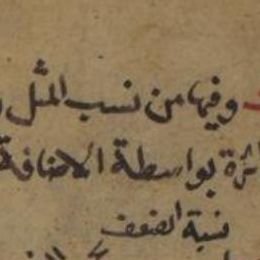 وفيها من نسب المثل
ئرة بواسطة الاضافة
نسبة الضعف